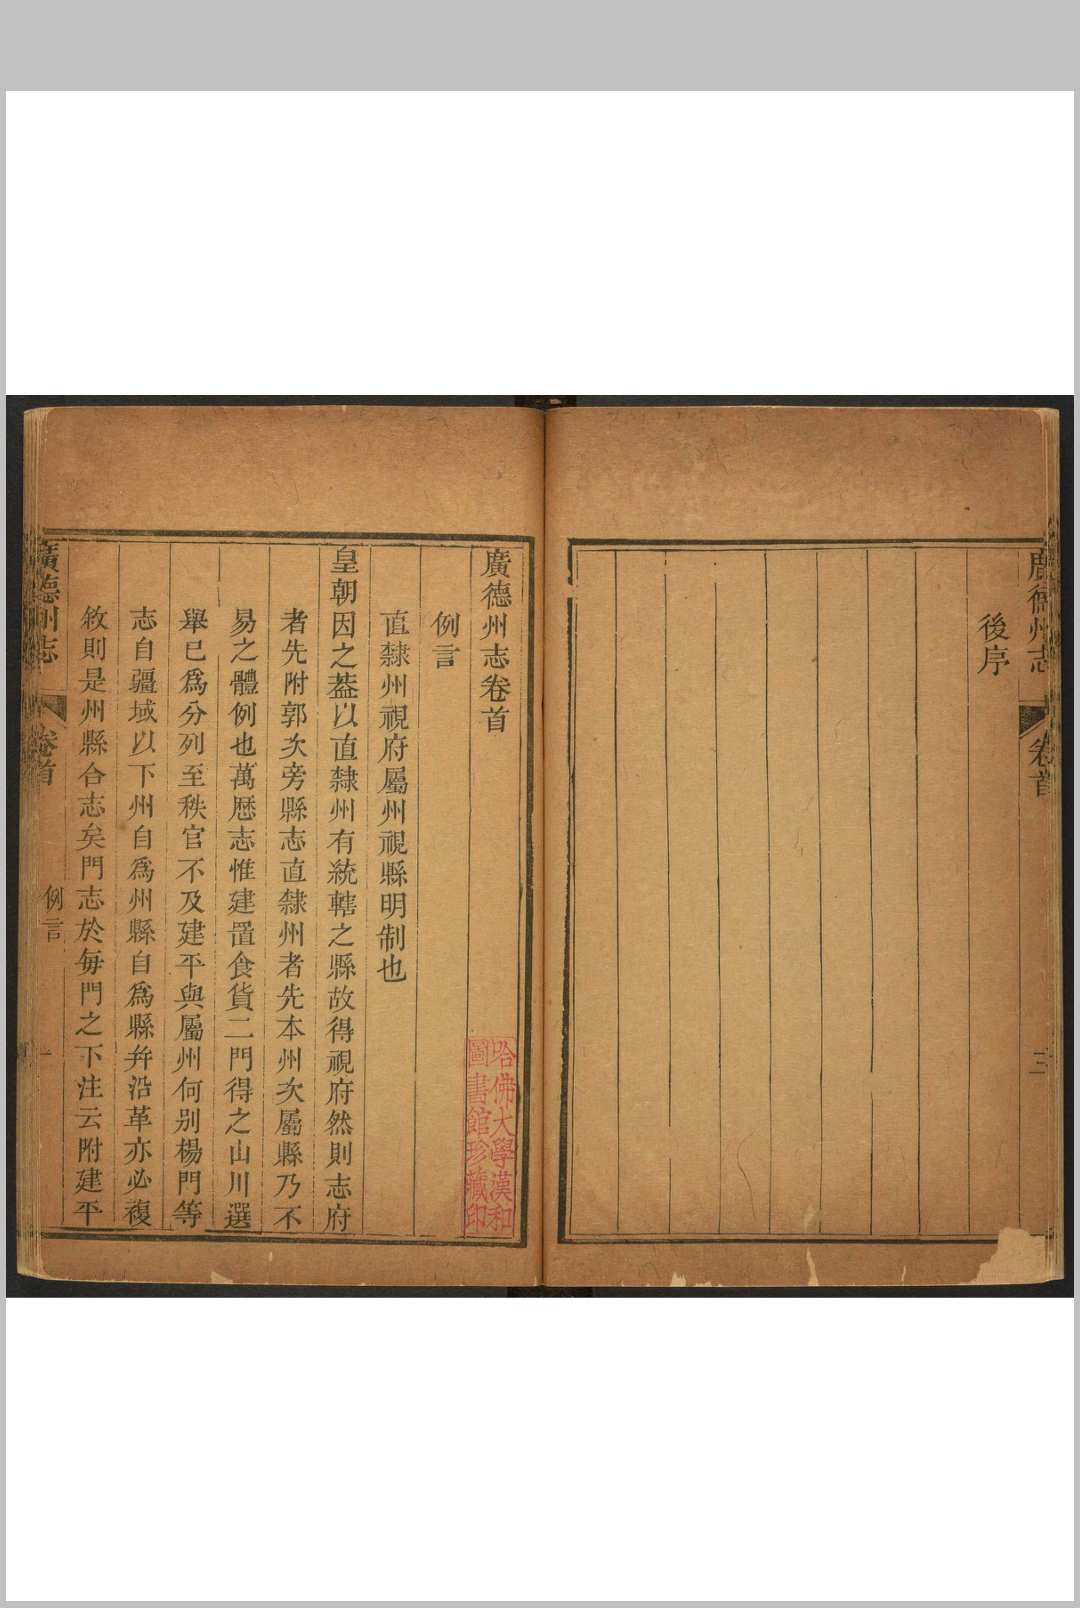 廣德州志
卷首
三
後序
廣德州志卷首
例言
直隸州視府屬州視縣明制也
皇朝因之葢以直隸州有統轄之縣故得視府然則志府
者先附郭次旁縣志直隸州者先本州次屬縣乃不
易之體例也萬歴志惟建置食貨二門得之山川選
舉已爲分列至秩官不及建平與屬州何别楊門等
志自疆域以下州自爲州縣自爲縣幷沿革亦必複
敘則是州縣合志矣門志於每門之下注云附建平
廣德州志
卷首
例言
一
哈佛大學漢和
圖書館珍藏印